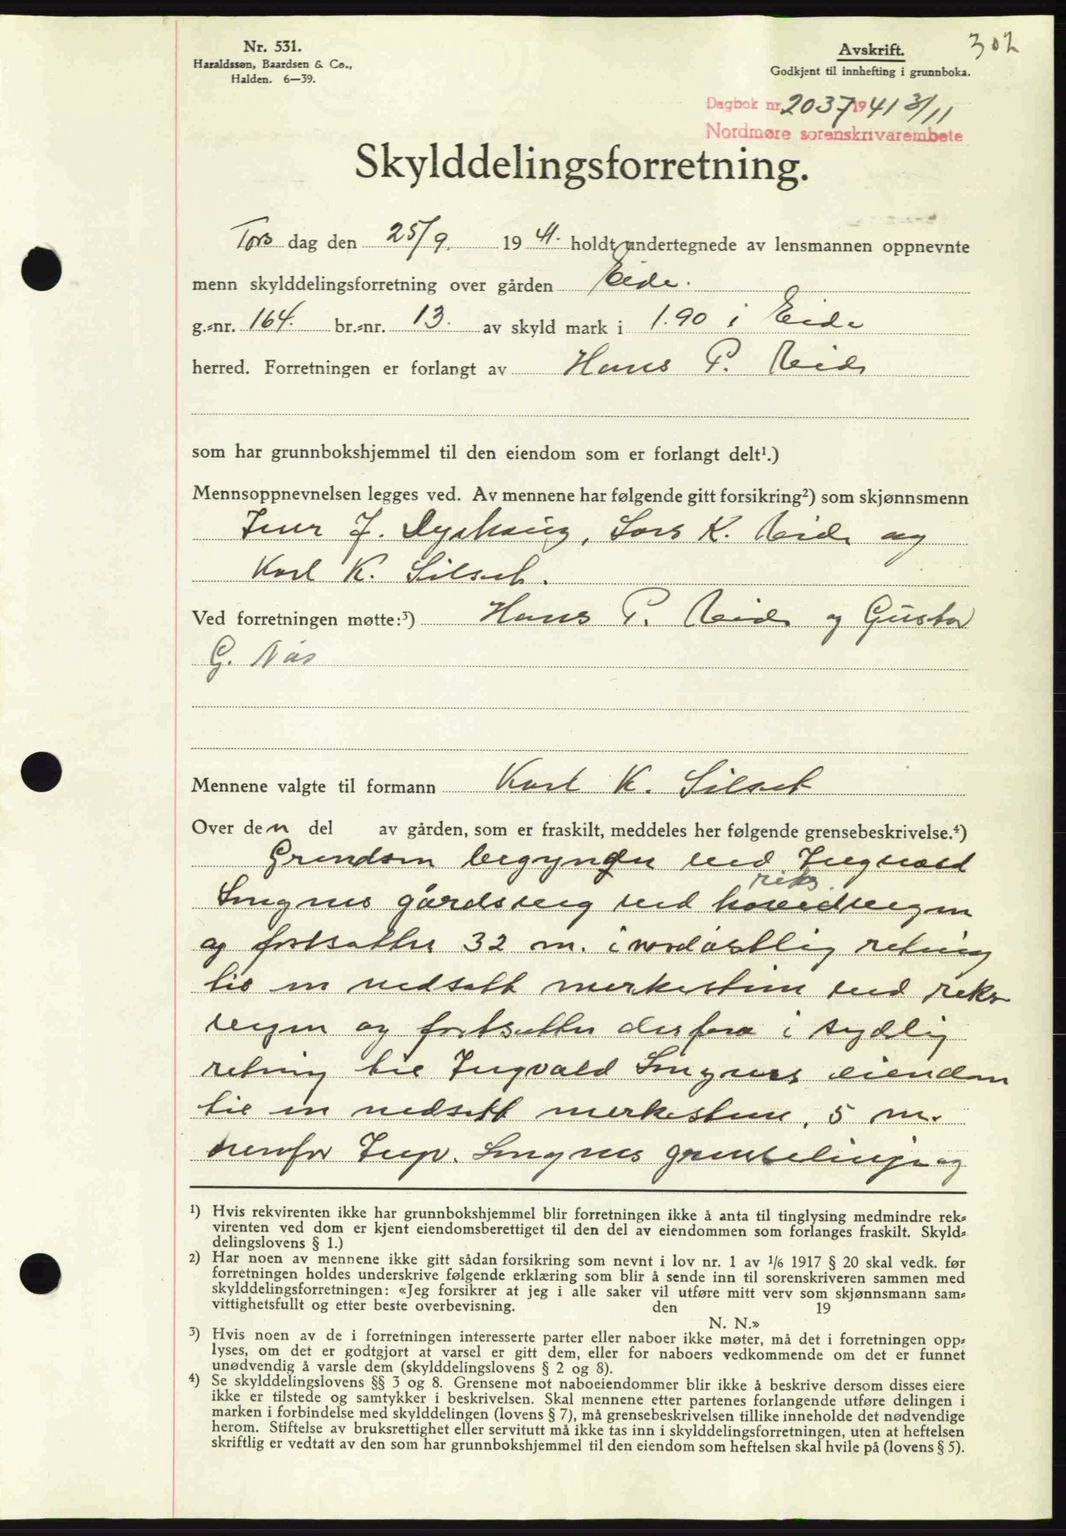 Nr. 531.
Haraldssøn, Baardsen & Co.,
Halden. 6—39.
Avskrift.
Godkjent til innhefting i grunnboka.
302
Dagbok nr. 2037 1941 3/11
Nordmøre sorenskrivarembete
Skylddelingsforretning.
Tors dag den 25/9. 19 41. holdt undertegnede av lensmannen oppnevnte
menn skylddelingsforretning over gården Eide.
g.-nr. 164. br.-nr. 13. av skyld mark i 1.90 i Eide
herred. Forretningen er forlangt av Hans P. Eide
som har grunnbokshjemmel til den eiendom som er forlangt delt¹.)
Mennsoppnevnelsen legges ved. Av mennene har følgende gitt forsikring²) som skjønnsmenn
Iver J. Lars K. Eide og
Karl K. Silset.
Ved forretningen møtte:³) Hans P. Eide og Gustav
G. Nås
Mennene valgte til formann Karl K. Silset
Over den del av gården, som er fraskilt, meddeles her følgende grensebeskrivelse.⁴)
Grendsen begynder ved Ingvald
Lyngnes gårdsveg ved hovedveigen
riks
og fortsætter 32 m. i nordøstlig retning
til en nedsatt merkestein ved riks-
veigen og fortsætter derfra i sydlig
retning til Ingvald Lyngnes eiendom
til en nedsatt merkestein, 5 m.
ovenfor Ingv. Lyngnes grenselinje og
¹) Hvis rekvirenten ikke har grunnbokshjemmel blir forretningen ikke å anta til tinglysing medmindre rek-
virenten ved dom er kjent eiendomsberettiget til den del av eiendommen som forlanges fraskilt. Skyld-
delingslovens § 1.)
²) Har noen av mennene ikke gitt sådan forsikring som nevnt i lov nr. 1 av ¹/₆ 1917 § 20 skal vedk. før
forretningen holdes underskrive følgende erklæring som blir å sende inn til sorenskriveren sammen med
skylddelingsforretningen: «Jeg forsikrer at jeg i alle saker vil utføre mitt verv som skjønnsmann sam-
vittighetsfullt og etter beste overbevisning. den 19
N. N.»
³) Hvis noen av de i forretningen interesserte parter eller naboer ikke møter, må det i forretningen opp-
lyses, om det er godtgjort at varsel er gitt dem, eller for naboers vedkommende om det er funnet
unødvendig å varsle dem (skylddelingslovens § 2 og 8).
⁴) Se skylddelingslovens §§ 3 og 8. Grensene mot naboeiendommer blir ikke å beskrive dersom disses eiere
ikke er tilstede og samtykker i beskrivelsen. Skal mennene etter partenes forlangende utføre delingen i
marken i forbindelse med skylddelingen (lovens § 7), må grensebeskrivelsen tillike inneholde det nødvendige
herom. Stiftelse av bruksrettighet eller servitutt må ikke tas inn i skylddelingsforretningen, uten at heftelsen
skriftlig er vedtatt av den som har grunnbokshjemmel til den eiendom som heftelsen skal hvile på (lovens § 5).